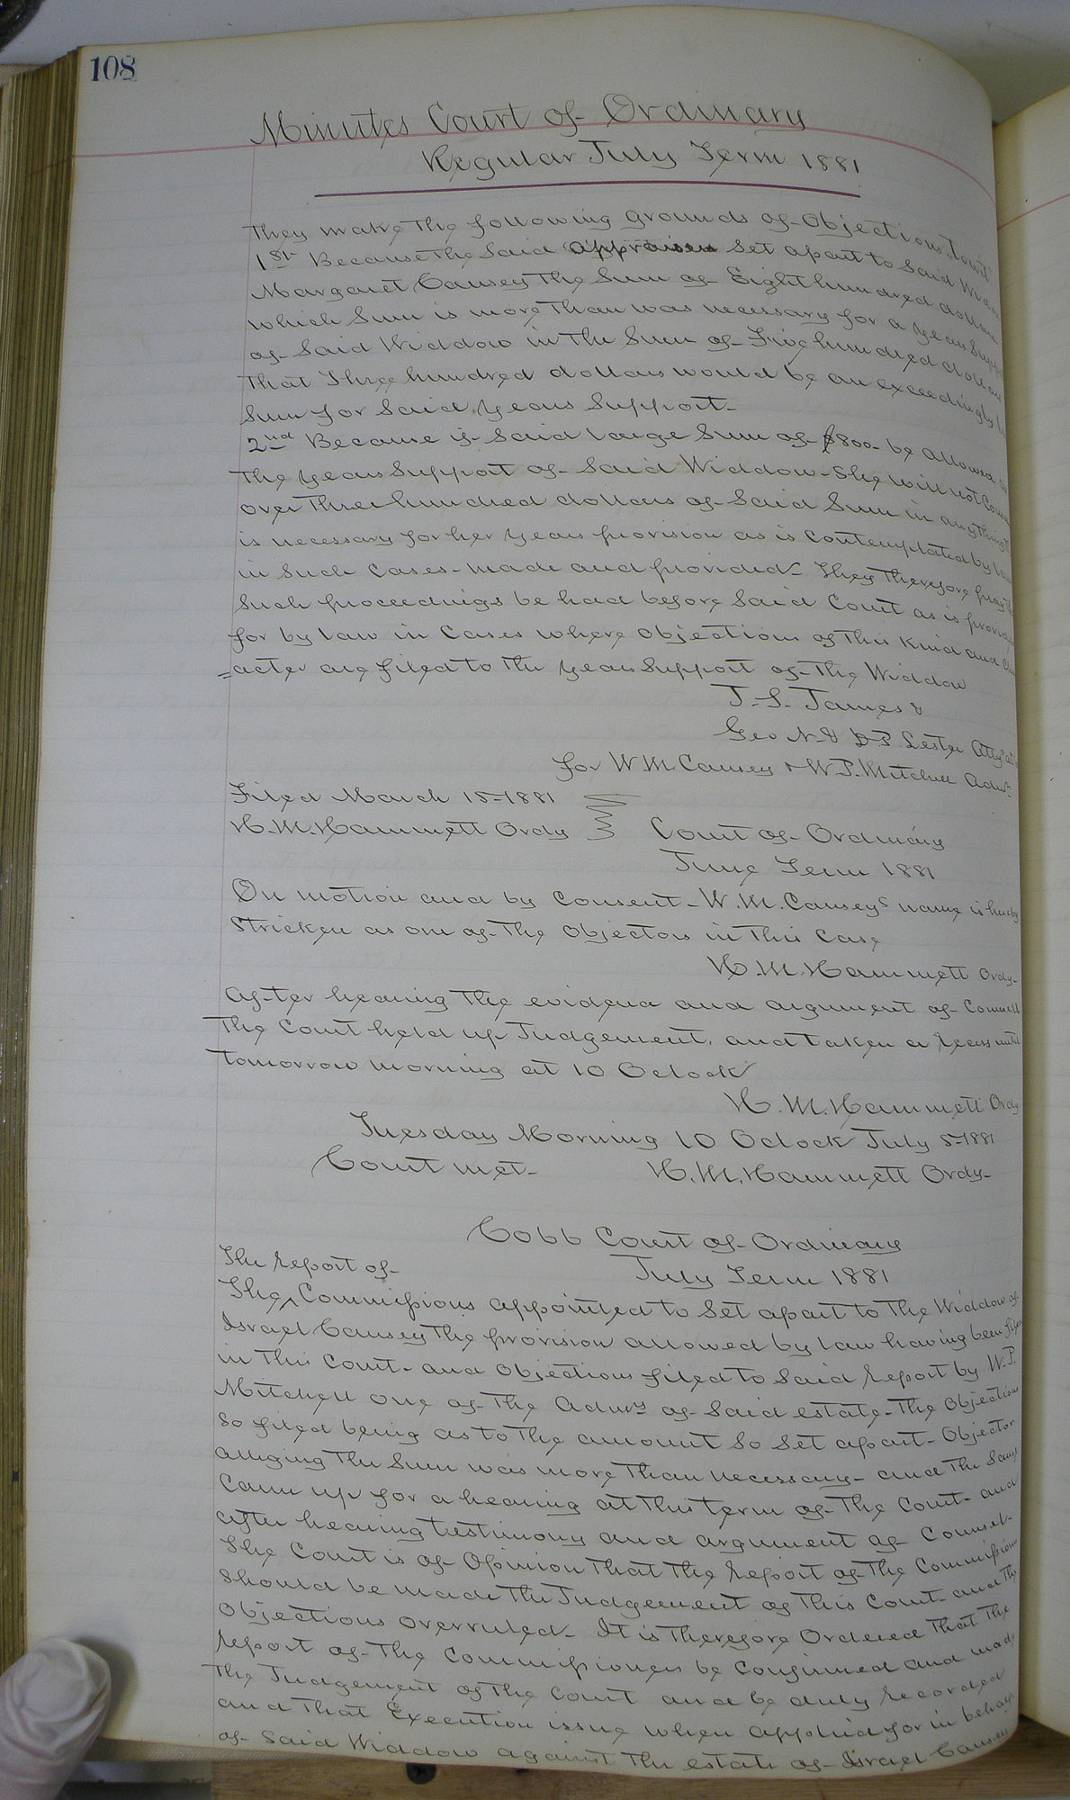 108
Minutes Court of Ordinary
Regular July Term 1881
They make the following grounds of Objections Towit
1st Because the Said appraisers Set apart to Said Widow
Margaret Causey the Sum of Eight hundred dollars
which Sum is more than was necessary for a years Support
of Said Widdow in the Sum of Five hundred dollars
that Three hundred dollars would be an exceedingly
Sum for Said years Support-
2nd Because if Said large Sum of $800- be allowed
the years Support of Said Widdow- She will not
over three hundred dollars of Said Sum in anything
is necessary for her years provision as is Contemplated by law
in Such Cases- made and provided- They Therefore pray
Such proceedings be had before Said Court as is provided
for by law in Cases where objections of this Kind and
=acter are filed to the years Support of the Widdow
J. S. James &
Geo N & D P Lester Attys
for W M Causey & W P. Mitchell Admr
Filed March 15-1881
H. M. Hammett Ordy Court of Ordinary
June Term 1881
On motion and by Consent- W. M. Causeys name is hereby
Stricken as one of the Objectors in this Case
H. M. Hammett Ordy-
After hearing the evidence and argument of Counsell
The Court held up Judgement, and taken a recess until
tomorrow morning at 10 Oclock
H. M. Hammett Ordy
Tuesday Morning 10 Oclock July 5-1881
Court met- H. M. Hammett Ordy-
Cobb Court of Ordinary
The report of- July Term 1881
The ^ Commissions appointed to Set apart to the Widdow of
Israel Causey the provision allowed by law having been filed
in this Court- and Objections filed to Said report by W. P.
Mitchell one of the Admrs of Said estate- the Objections
So filed being as to the amount So Set apart- Objector
alleging the Sum was more than necessary- and the Same
Came up for a hearing at this term of the Court- and
after hearing testimony and argument of Counsel-
The Court is of Opinion that the report of the Commissions
Should be made the Judgement of this Court- and the
Objections overruled- It is therefore Ordered that the
report of the Commissioners be Confirmed and made
the Judgement of the Court and be duly recorded
and that Execution issue when applied for in behalf
of Said Widdow against the estate of Israel Causey